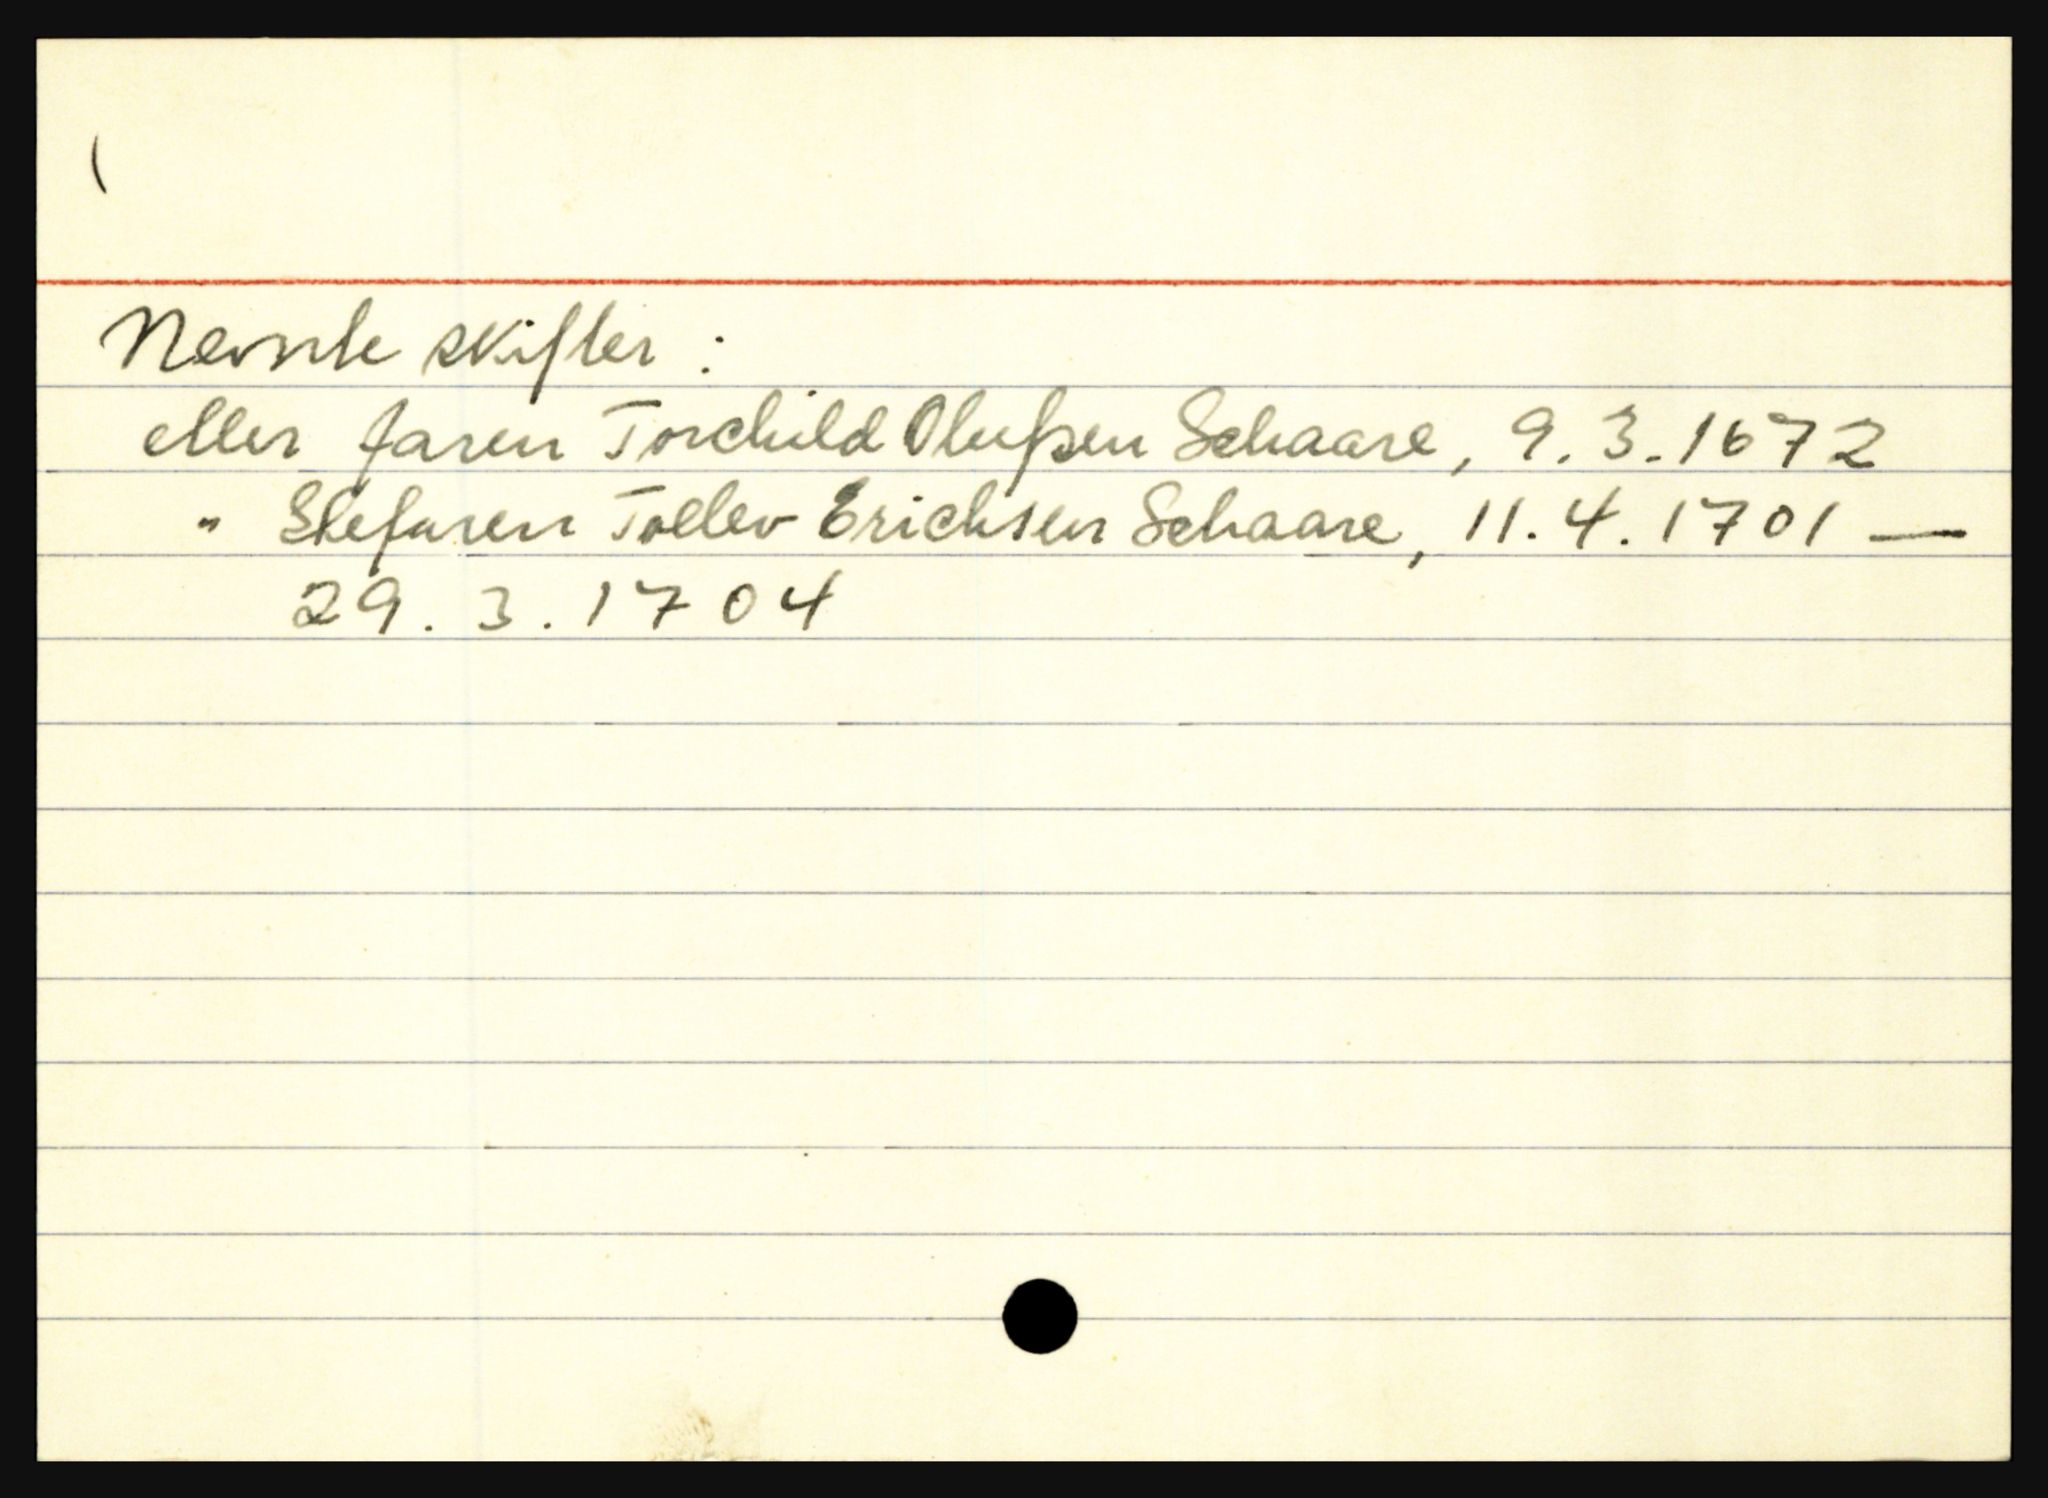 (
Nevnte skifter :
etter faren Torchild Olufsen Schaare, 9.3.1672
" Stefaren Tollev Erichsen Schaare, 11.4.1701 —
29.3.1704